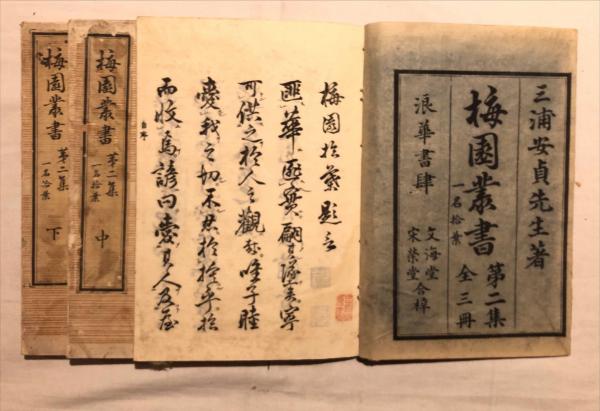 三浦安貞先生著
梅園叢書 第二集
一名拾葉 全三冊
浪華書肆 文海堂
宋榮堂合梓
梅園拾葉題言
匪華匪實翩其墜矣寧
可供之於人之觀哉唯子睦
愛我之切不忍於捨乎拾
而收焉諺曰愛其人及屋
自序
梅園叢書 第二集 中
一名拾葉
梅園叢書 第二集 下
一名拾葉